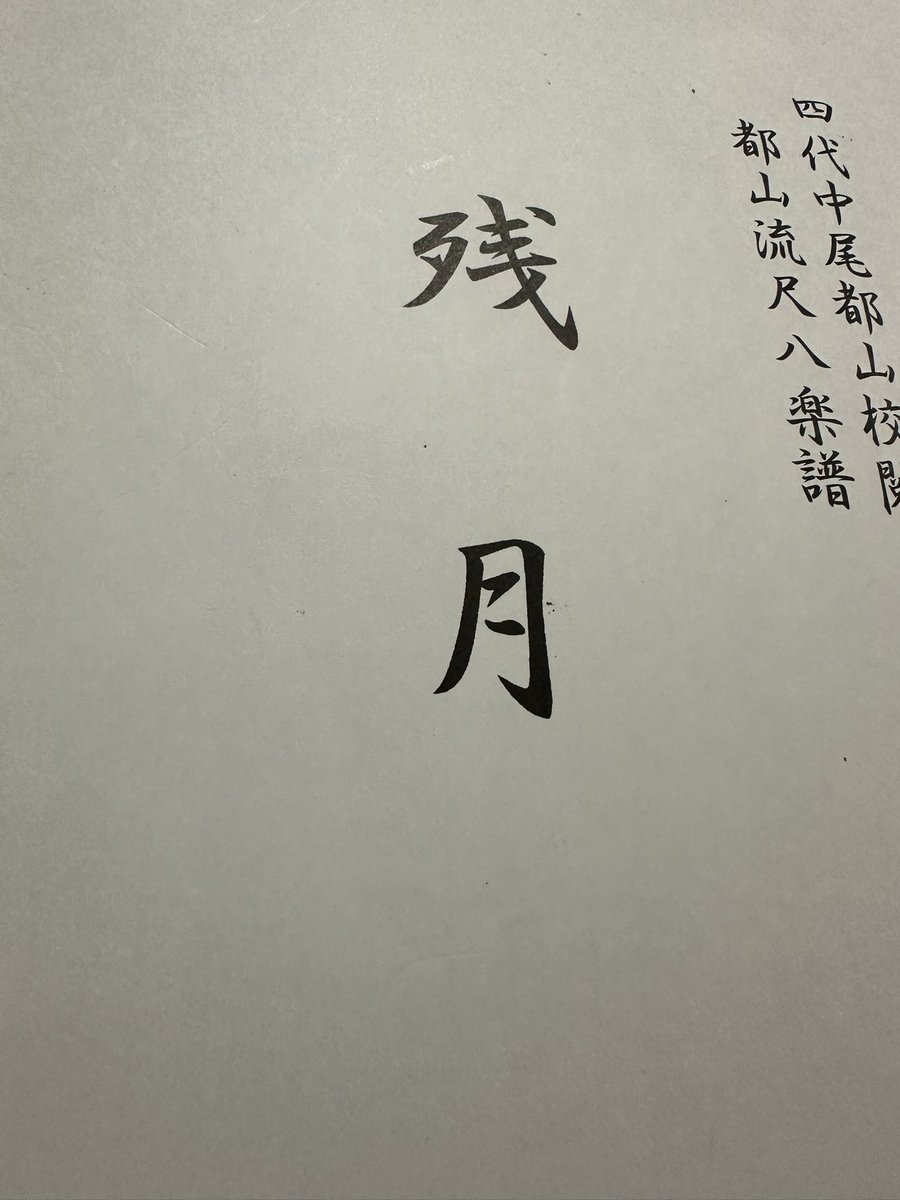 四代中尾都山校閲
都山流尺八楽譜
残月